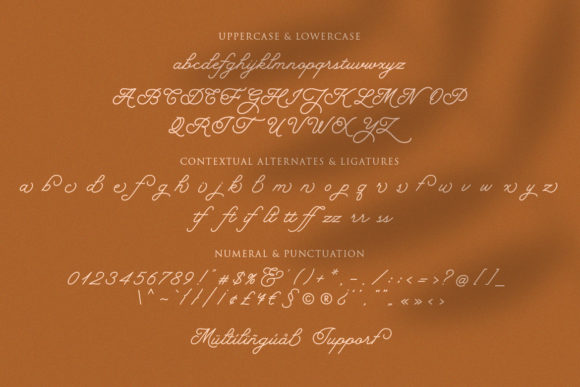 UPPERCASE & LOWERCASE
abcdefghyklmnopqrstuvwxyz
ABCDEFGHIJKLMNOP
QRST UVWXYZ
CONTEXTUAL ALTERNATES & LIGATURES
a b c d e f g h i j k l m n o p q r s t u v w x y z
tf ft if lt tt ff zz rr ss
NUMERAL & PUNCTUATION
0123456789!"#$%&'()+*,-./:;<=>?@[]_
\^~`{|}¡¢£¥€§©®¿¨´,"",,«»‹›
Mültilíñgúál Support